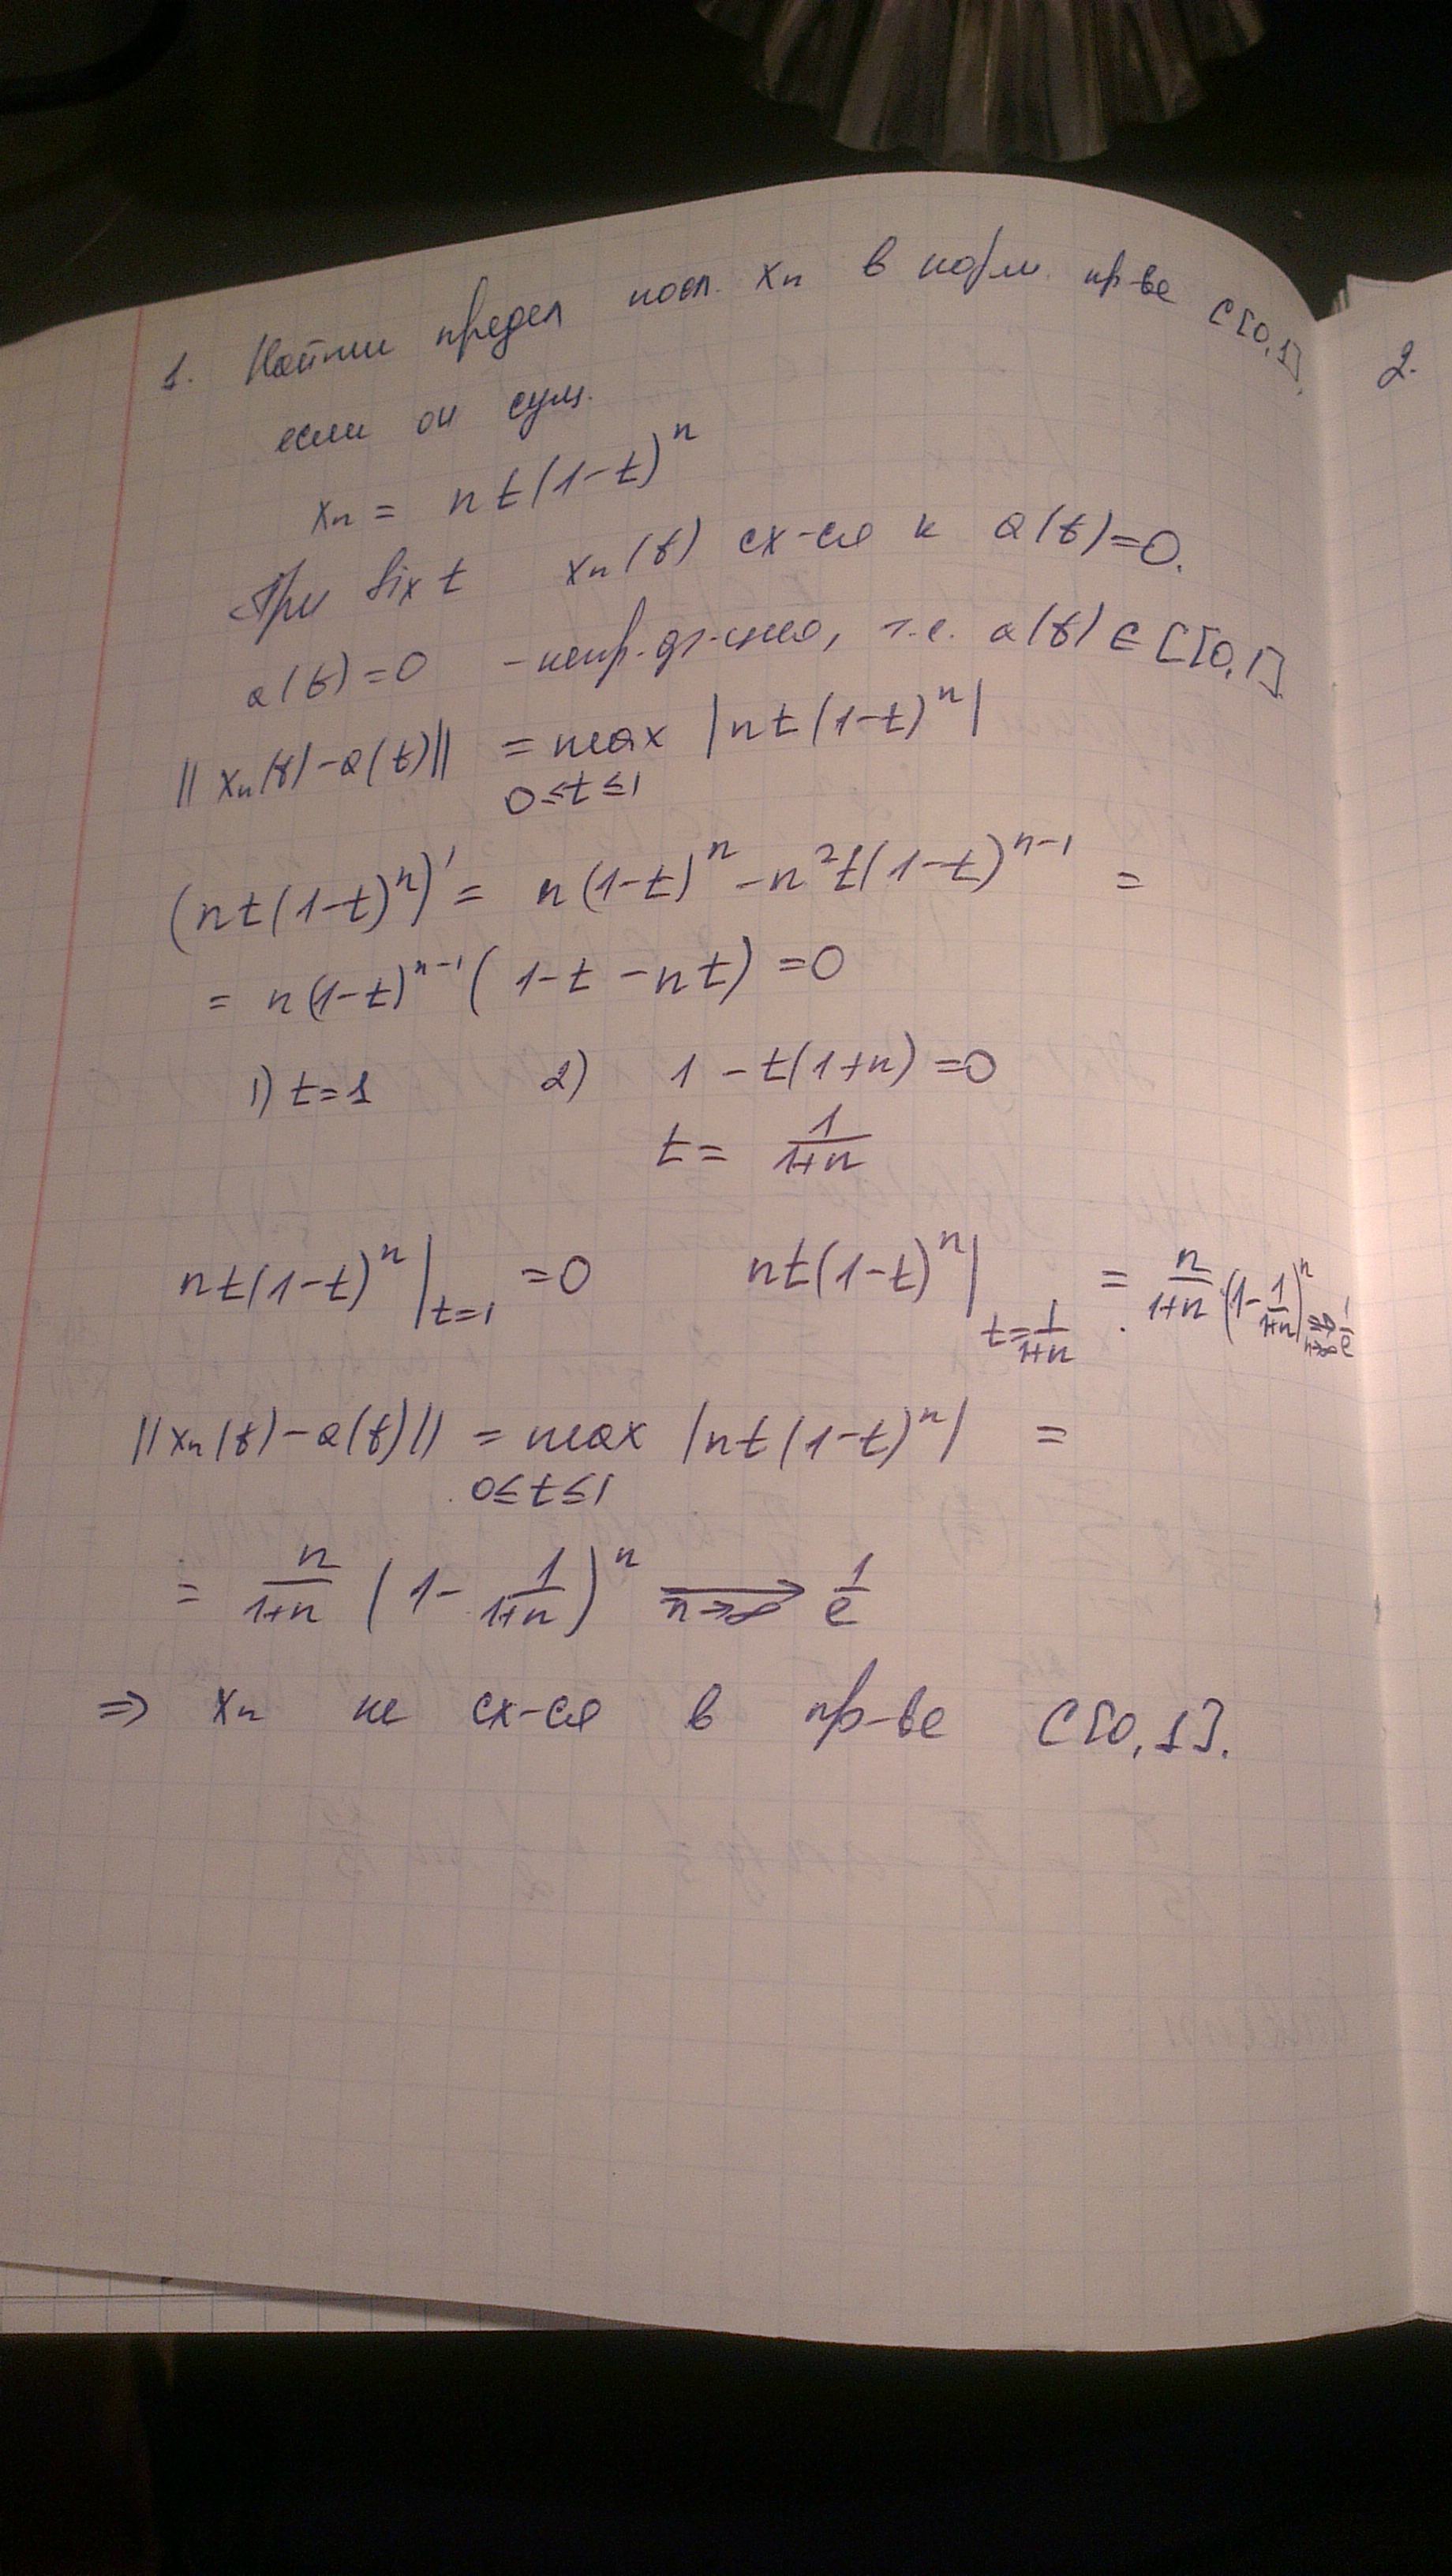 1. Найти предел посл. xₙ в норм. пр-ве C[0,1],
если он сущ.
xₙ = nt(1-t)ⁿ
При fix t xₙ(t) сх-ся к a(t)=0.
a(t)=0 - непр. ф-ция, т.е. a(t) ∈ C[0,1]
||xₙ(t)-a(t)|| = max |nt(1-t)ⁿ|
0≤t≤1
(nt(1-t)ⁿ)' = n(1-t)ⁿ - n²t(1-t)ⁿ⁻¹ =
= n(1-t)ⁿ⁻¹(1-t-nt) = 0
1) t=1 2) 1-t(1+n)=0
t = 1/(1+n)
nt(1-t)ⁿ|t=1 = 0 nt(1-t)ⁿ|t=1/(1+n) = n/(1+n) (1-1/(1+n))ⁿ ⇒ n→∞ 1/e
||xₙ(t)-a(t)|| = max |nt(1-t)ⁿ| =
0≤t≤1
= n/(1+n) (1-1/(1+n))ⁿ ⇒ n→∞ 1/e
⇒ xₙ не сх-ся в пр-ве C[0,1].
2.